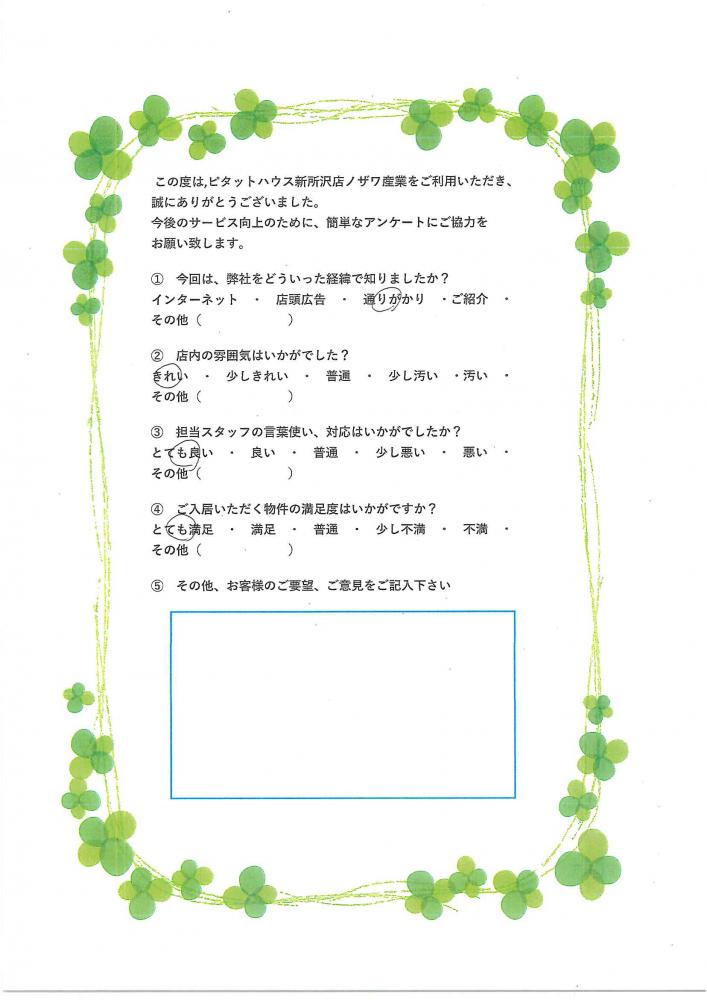 この度は,ピタットハウス新所沢店ノザワ産業をご利用いただき、
誠にありがとうございました。
今後のサービス向上のために、簡単なアンケートにご協力を
お願い致します。
① 今回は、弊社をどういった経緯で知りましたか？
インターネット ・ 店頭広告 ・ 通りがかり ・ご紹介 ・
その他（ ）
② 店内の雰囲気はいかがでした？
きれい ・ 少しきれい ・ 普通 ・ 少し汚い ・汚い ・
その他（ ）
③ 担当スタッフの言葉使い、対応はいかがでしたか？
とても良い ・ 良い ・ 普通 ・ 少し悪い ・ 悪い ・
その他（ ）
④ ご入居いただく物件の満足度はいかがですか？
とても満足 ・ 満足 ・ 普通 ・ 少し不満 ・ 不満 ・
その他（ ）
⑤ その他、お客様のご要望、ご意見をご記入下さい